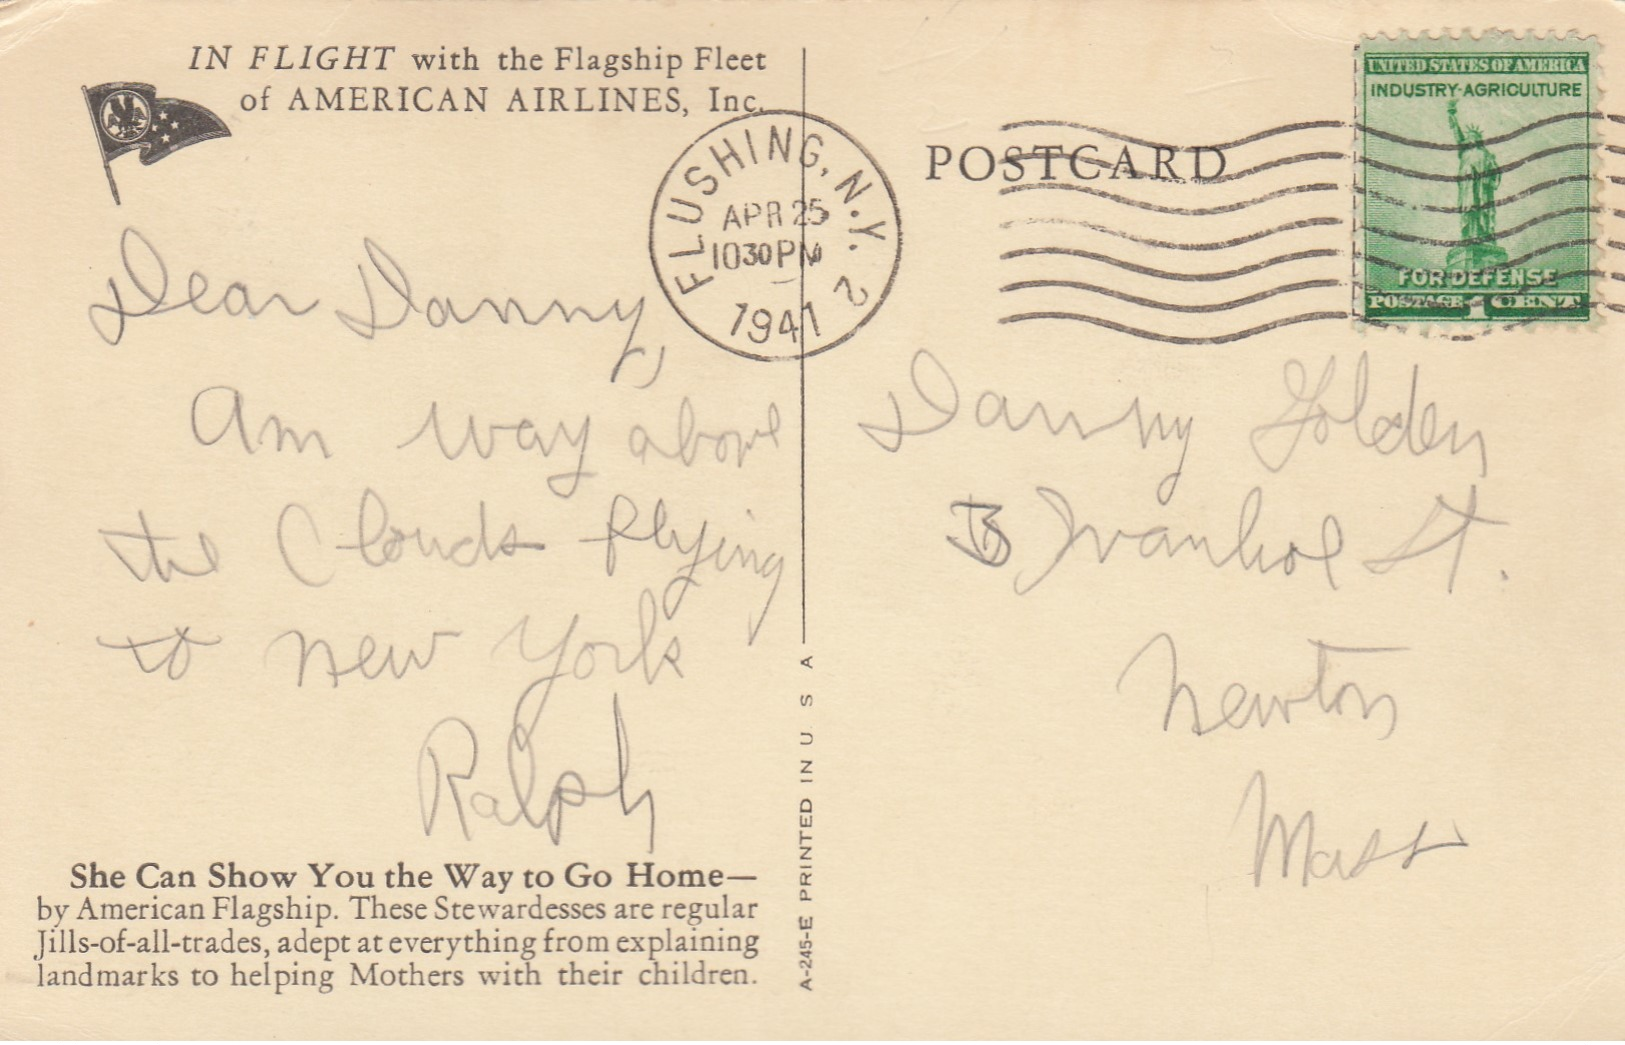 IN FLIGHT with the Flagship Fleet
of AMERICAN AIRLINES, Inc.
FLUSHING, N.Y. 2
APR 25
10 30 PM
1941
POSTCARD
UNITED STATES OF AMERICA
INDUSTRY-AGRICULTURE
FOR DEFENSE
POSTAGE 1 CENT
Dear Danny,
am way above
the Clouds flying
to new York
Ralph
Danny Golden
Ivanhoe St.
Newton
Mass
She Can Show You the Way to Go Home—
by American Flagship. These Stewardesses are regular
Jills-of-all-trades, adept at everything from explaining
landmarks to helping Mothers with their children.
A-245-E PRINTED IN U S A